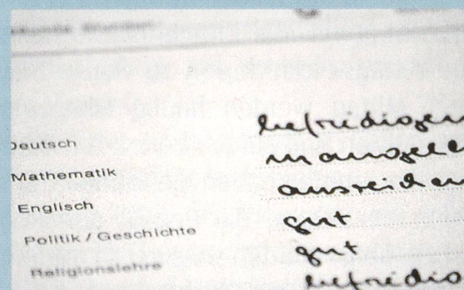 Deutsch befriedigen
Mathematik mangel
Englisch ausreichen
Politik / Geschichte gut
Religionslehre gut
befriedig